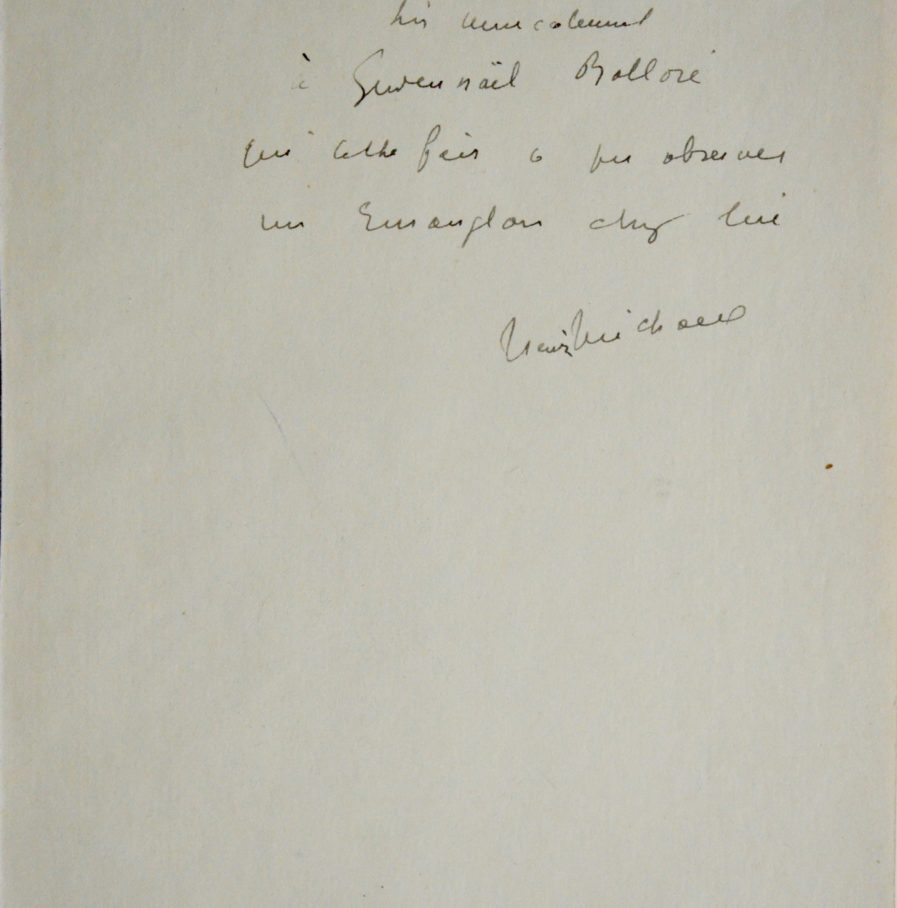 très amicalement
à Gwen naël Bolloré
qui cette fois a pu observer
un Emanglon chez lui
Henri Michaux